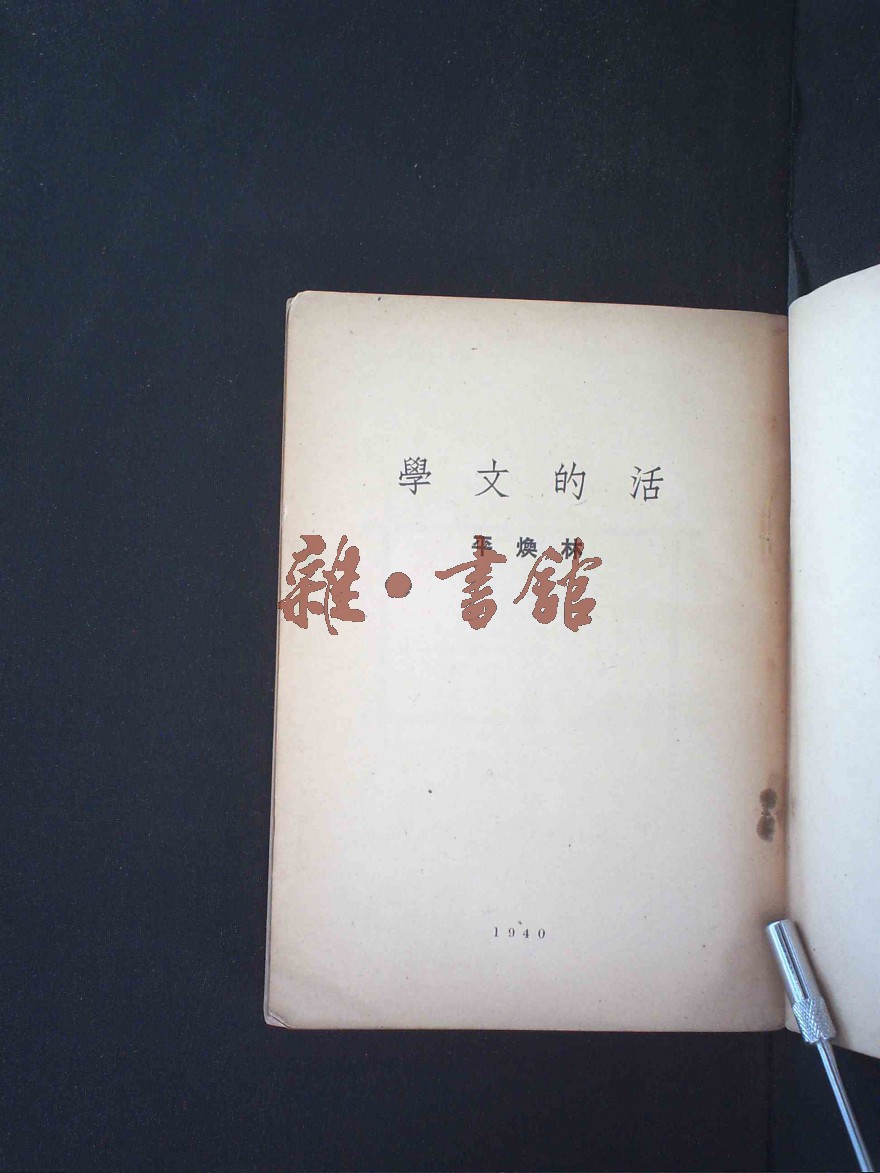 活的文學
林煥平
雜·書館
1940